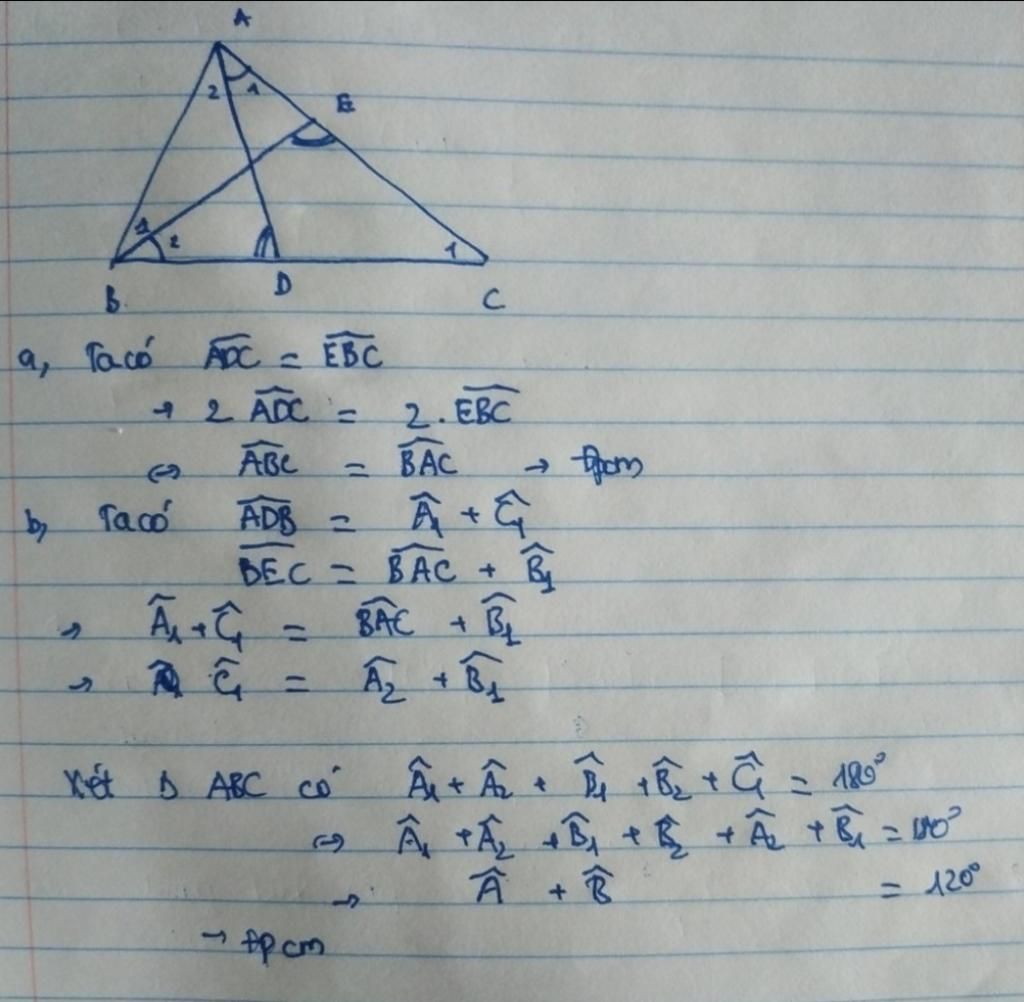 A
2 1
E
1 2
1
B D C
a, Ta có $\widehat{ADC}$ = $\widehat{EBC}$
→ 2 $\widehat{ADC}$ = 2. $\widehat{EBC}$
⇔ $\widehat{ABC}$ = $\widehat{BAC}$ → đpcm
b, Ta có $\widehat{ADB}$ = $\widehat{A}_1$ + $\widehat{C}_1$
$\widehat{BEC}$ = $\widehat{BAC}$ + $\widehat{B}_1$
→ $\widehat{A}_1$ + $\widehat{C}_1$ = $\widehat{BAC}$ + $\widehat{B}_1$
→ $\widehat{C}_1$ = $\widehat{A}_2$ + $\widehat{B}_1$
Xét Δ ABC có $\widehat{A}_1$ + $\widehat{A}_2$ + $\widehat{B}_1$ + $\widehat{B}_2$ + $\widehat{C}_1$ = 180°
⇔ $\widehat{A}_1$ + $\widehat{A}_2$ + $\widehat{B}_1$ + $\widehat{B}_2$ + $\widehat{A}_2$ + $\widehat{B}_1$ = 180°
→ $\widehat{A}$ + $\widehat{B}$ = 120°
→ đpcm